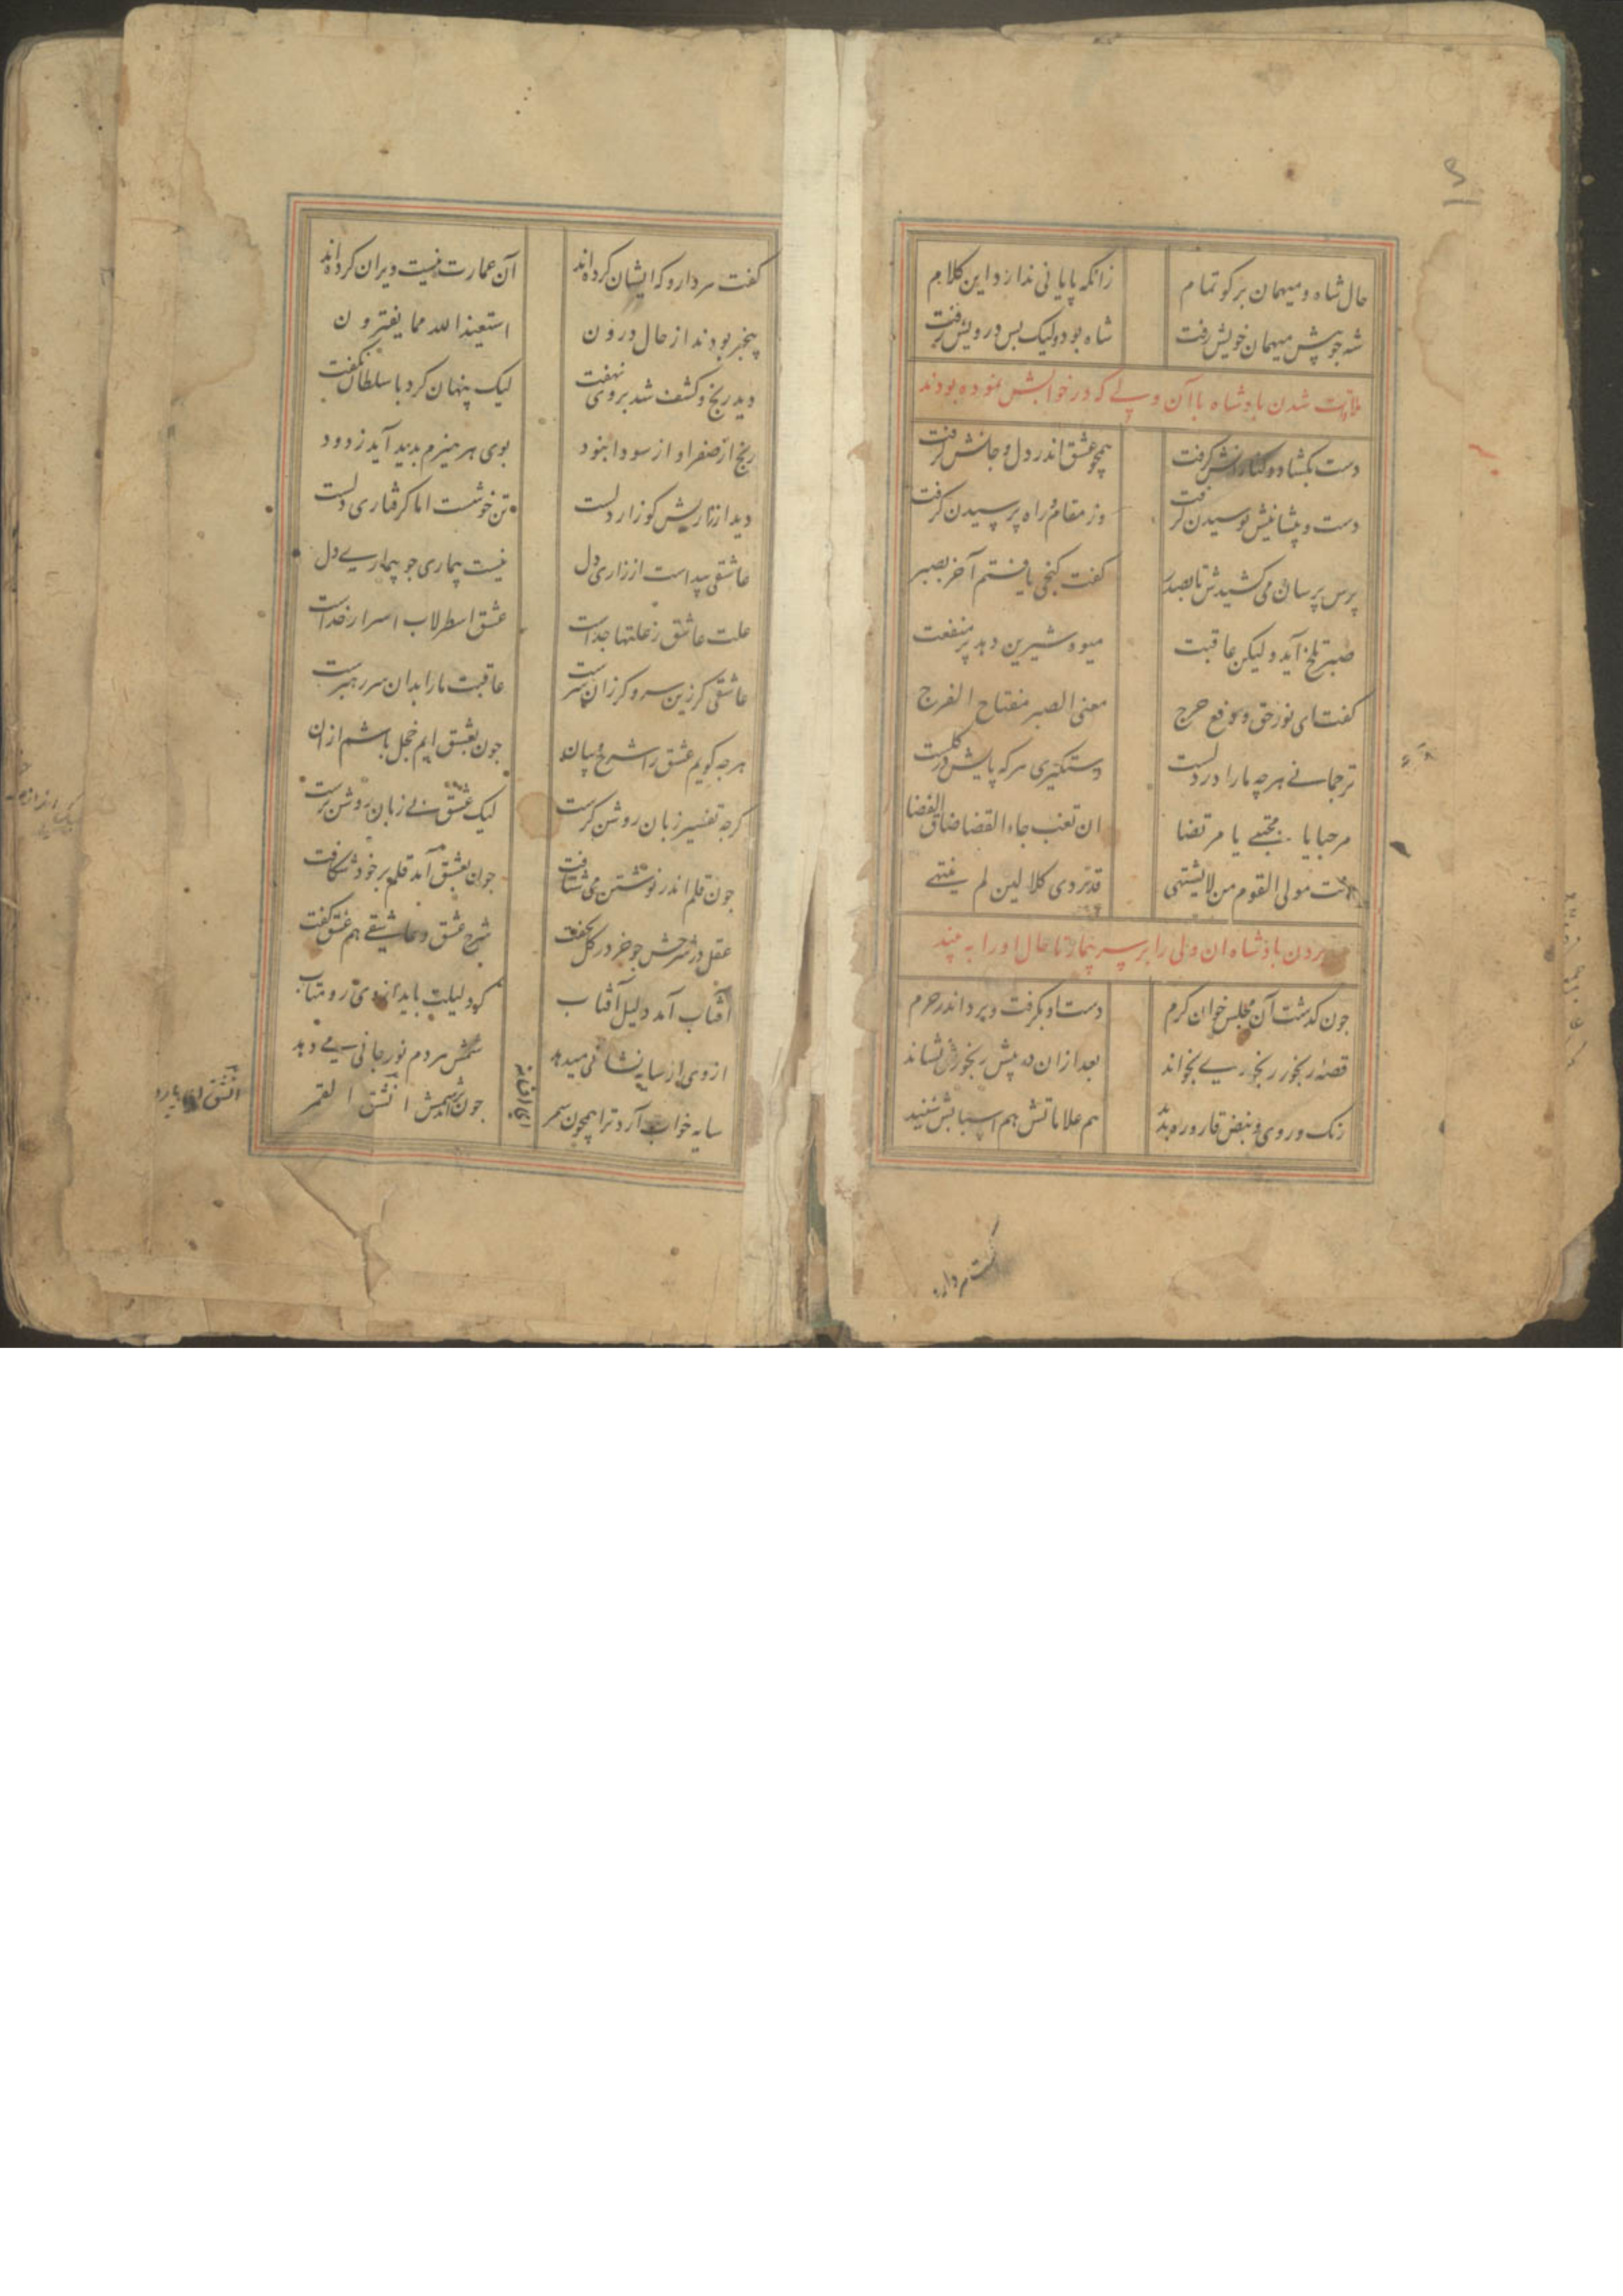 حال شاه و میهمان برکو تمام زانکه پایانی ندارد این کلام
شه جو پیش میهمان خویش رفت شاه بود و لیک بس درویش رفت
ملاقات شدن بادشاه با آن ولے که در خوابش نموده بودند
دست بکشاد و کنارانش کرفت همچو عشق اندر دل و جانش کرفت
دست و پیشانیش بوسیدن کرفت وز مقام و راه پرسیدن کرفت
پرس پرسان می کشیدش تا بصدر کفت کنجی یافتم آخر بصبر
صبر تلخ آید و لیکن عاقبت میوه شیرین دهد پر منفعت
کفت ای نور حق و دفع حرج معنی الصبر مفتاح الفرج
ترجمانے هرچه ما را در دلست دستکیری هرکه پایش در کلست
مرحبا یا مجتبے یا مرتضا ان تغب جاء القضا ضاق الفضا
انت مولی القوم من لا یشتهی قد ردی کلا لین لم ینتهے
بردن بادشاه ان ولی را بر سر بیمار تا حال او را به بیند
جون کذشت آن مجلس خوان کرم دست او بکرفت و برد اندر حرم
قصه رنجور رنجوریے بخواند بعد از ان در پیش رنجورش نشاند
رنک و روی و نبض قاروره بدید هم علاماتش هم اسبابش شنید
کفت هر دارو
کفت هر دارو که ایشان کرده اند آن عمارت نیست ویران کرده اند
بیخبر بودند از حال درون استعیذ الله مما یفترون
دید رنج و کشف شد بروی نهفت لیک پنهان کرد با سلطان نکفت
رنج از صفرا و از سودا نبود بوی هر هیزم بدید آید ز دود
دید از زاریش کو زار دلست تن خوشست اما کرفتاری دلست
عاشقی پیداست از زاری دل نیست بیماری جو بیماریے دل
علت عاشق ز علتها جداست عشق اسطرلاب اسرار خداست
عاشقی کر زین سر و کر زان سرست عاقبت ما را بدان سر رهبرست
هرجه کویم عشق را شرح و بیان جون بعشق ایم خجل باشم از ان
کرجه تفسیر زبان روشن کرست لیک عشق بے زبان روشن ترست
جون قلم اندر نوشتن می شتافت جون بعشق آمد قلم بر خود شکافت
عقل در شرحش جو خر در کل بخفت شرح عشق و عاشقے هم عشق کفت
آفتاب آمد دلیل آفتاب کر دلیلت باید از وی رو متاب
از وی ار سایه نشانی میدهد شمس هر دم نور جانی مے دهد
سایه خواب آرد ترا همچون سمر جون برآمد شمس انشق القمر
ای افسانه